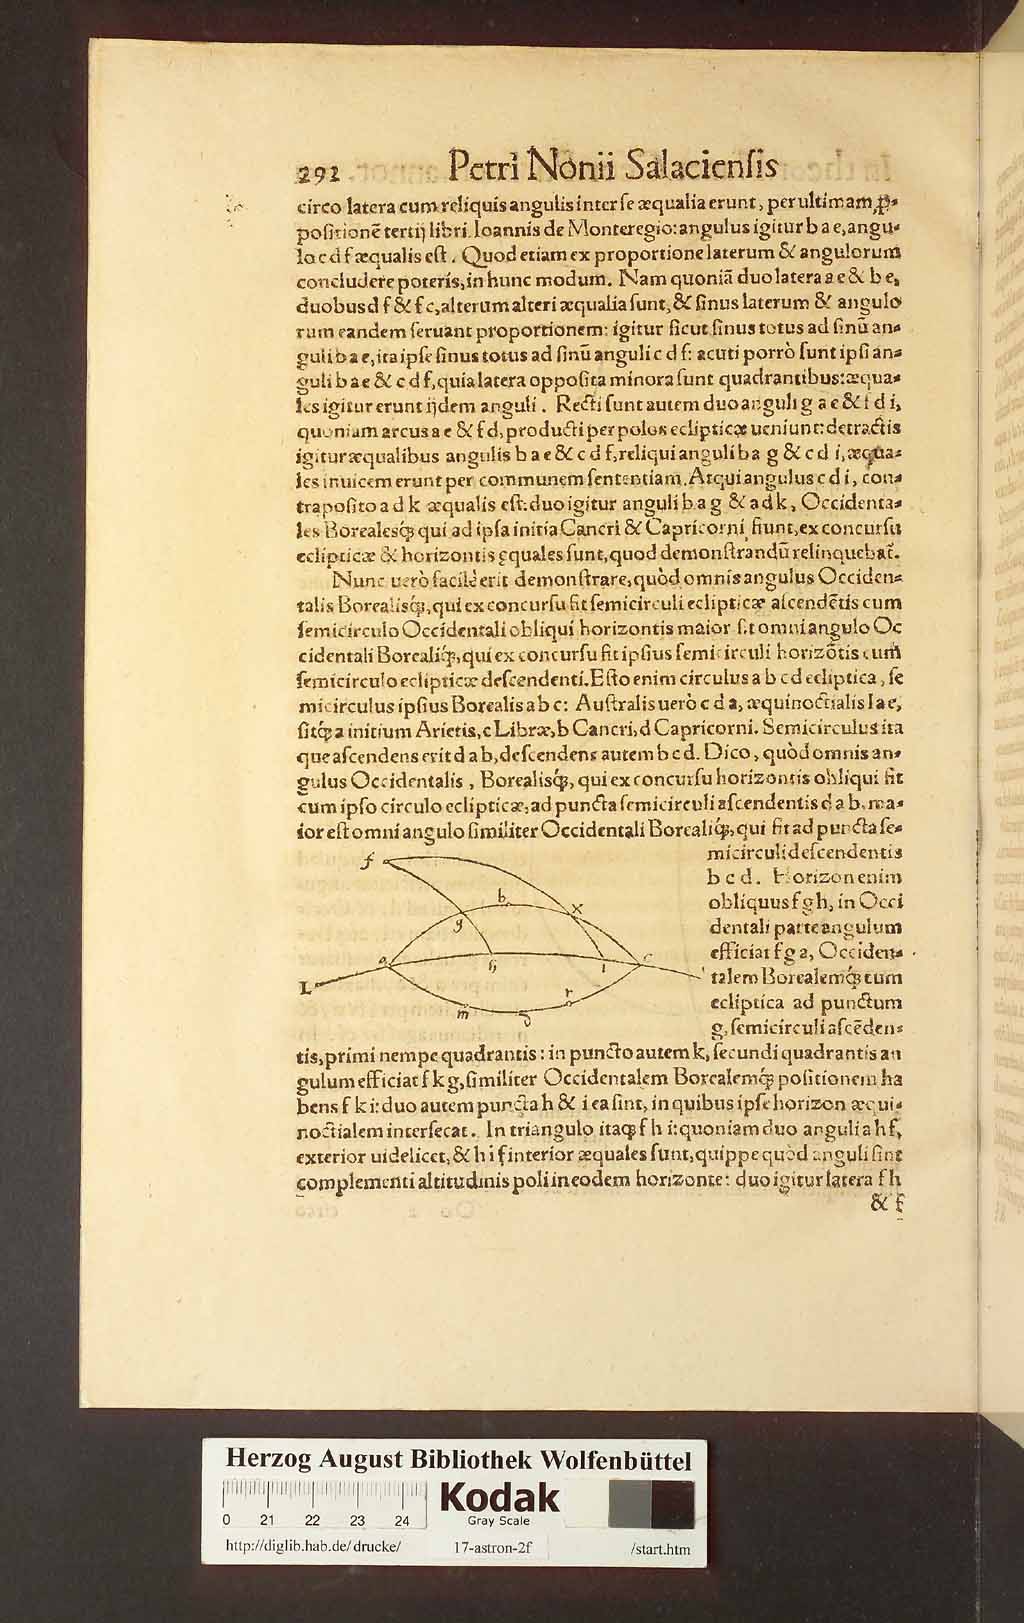 292 Petri Nonii Salaciensis
circo latera cum reliquis angulis inter se æqualia erunt, per ultimam, ꝓ-
positionē tertij libri Ioannis de Monteregio: angulus igitur b a e, angu-
lo c d f æqualis est. Quod etiam ex proportione laterum & angulorum
concludere poteris, in hunc modum. Nam quoniã duo latera a e & b e,
duobus d f & f c, alterum alteri æqualia sunt, & sinus laterum & angulo
rum eandem seruant proportionem: igitur sicut sinus totus ad sinũ an-
guli b a e, ita ipse sinus totus ad sinũ anguli c d f: acuti porrò sunt ipsi an-
guli b a e & c d f, quia latera opposita minora sunt quadrantibus: æqua-
les igitur erunt ijdem anguli. Recti sunt autem duo anguli g a e & f d i,
quoniam arcus a e & f d, producti per polos eclipticæ ueniunt: detractis
igitur æqualibus angulis b a e & c d f, reliqui anguli b a g & c d i, æqua-
les inuicem erunt per communem sententiam. Atqui angulus c d i, con-
traposito a d k æqualis est: duo igitur anguli b a g & a d k, Occidenta-
les Borealesq́; qui ad ipsa initia Cancri & Capricorni fiunt, ex concursu
eclipticæ & horizontis ęquales sunt, quod demonstrandũ relinquebat̃.
Nunc uerò facilè erit demonstrare, quòd omnis angulus Occiden-
talis Borealisq́;, qui ex concursu fit semicirculi eclipticæ ascendẽtis cum
semicirculo Occidentali obliqui horizontis maior sit omni angulo Oc
cidentali Borealiq́;, qui ex concursu fit ipsius semicirculi horizõtis cum
semicirculo eclipticæ descendenti. Esto enim circulus a b c d ecliptica, se
micirculus ipsius Borealis a b c: Australis uerò c d a, æquinoctialis l a e,
sitq́; a initium Arietis, c Libræ, b Cancri, d Capricorni. Semicirculus ita
que ascendens erit d a b, descendens autem b c d. Dico, quòd omnis an-
gulus Occidentalis, Borealisq́;, qui ex concursu horizontis obliqui fit
cum ipso circulo eclipticæ, ad puncta semicirculi ascendentis d a b, ma-
ior est omni angulo similiter Occidentali Borealiq́;, qui fit ad puncta se-
micirculi descendentis
b c d. Horizon enim
obliquus f g h, in Occi
dentali parte angulum
efficiat f g a, Occiden-
talem Borealemq́; cum
ecliptica ad punctum
g, semicirculi ascēden-
f
b
x
g
a
h
i
c
L
m
d
r
tis, primi nempe quadrantis: in puncto autem k, secundi quadrantis an
gulum efficiat f k g, similiter Occidentalem Borealemq́; positionem ha
bens f k i: duo autem puncta h & i ea sint, in quibus ipse horizon æqui-
noctialem intersecat. In triangulo itaq; f h i: quoniam duo anguli a h f,
exterior uidelicet, & h i f interior æquales sunt, quippe quòd anguli sint
complementi altitudinis poli in eodem horizonte: duo igitur latera f h
& f
Herzog August Bibliothek Wolfenbüttel
0 21 22 23 24
Kodak
Gray Scale
http://diglib.hab.de/drucke/ 17-astron-2f /start.htm